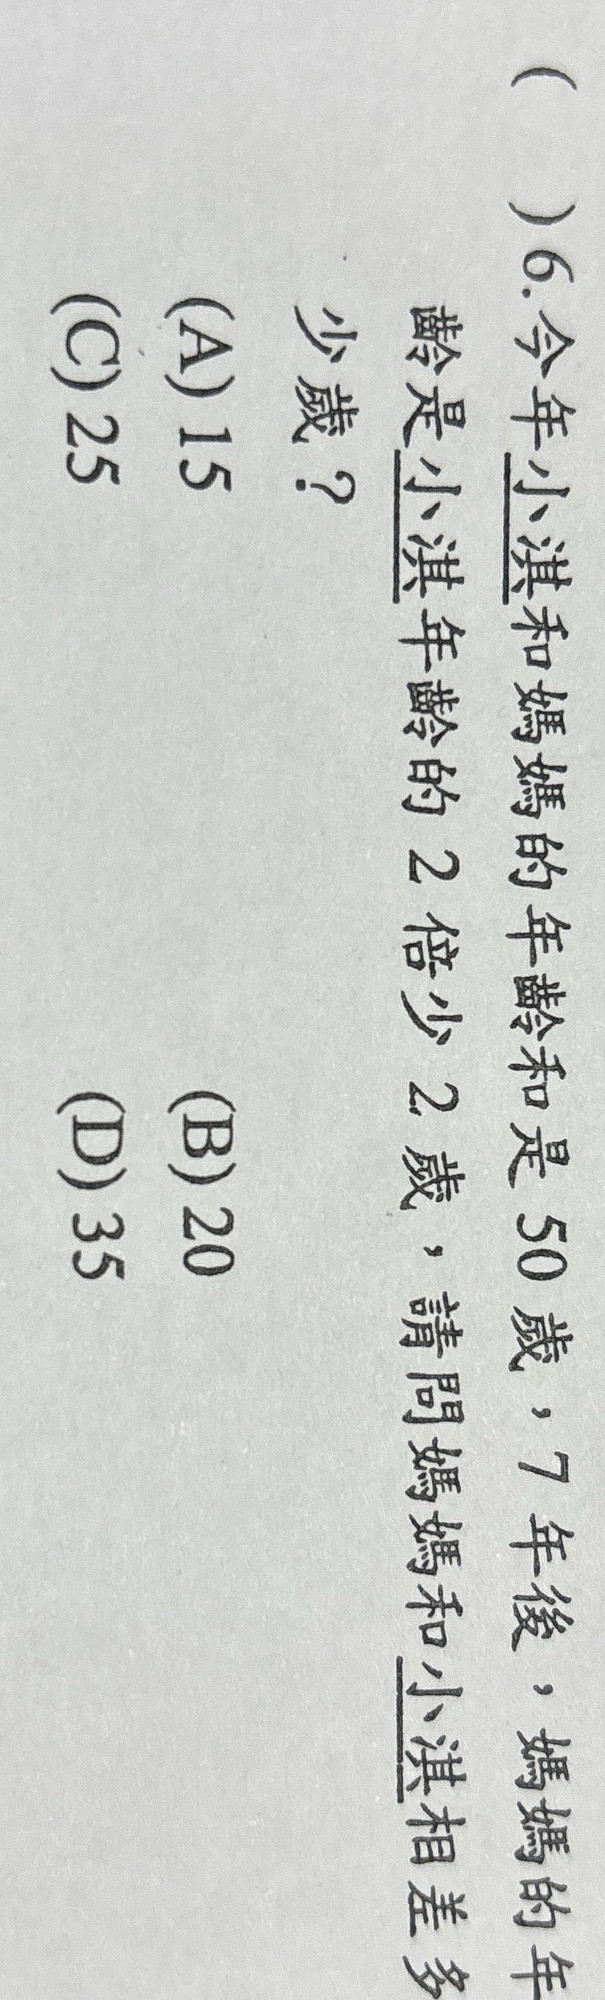 (　)6.今年小淇和媽媽的年齡和是 50 歲，7 年後，媽媽的年
齡是小淇年齡的 2 倍少 2 歲，請問媽媽和小淇相差多
少歲？
(A) 15　(B) 20
(C) 25　(D) 35